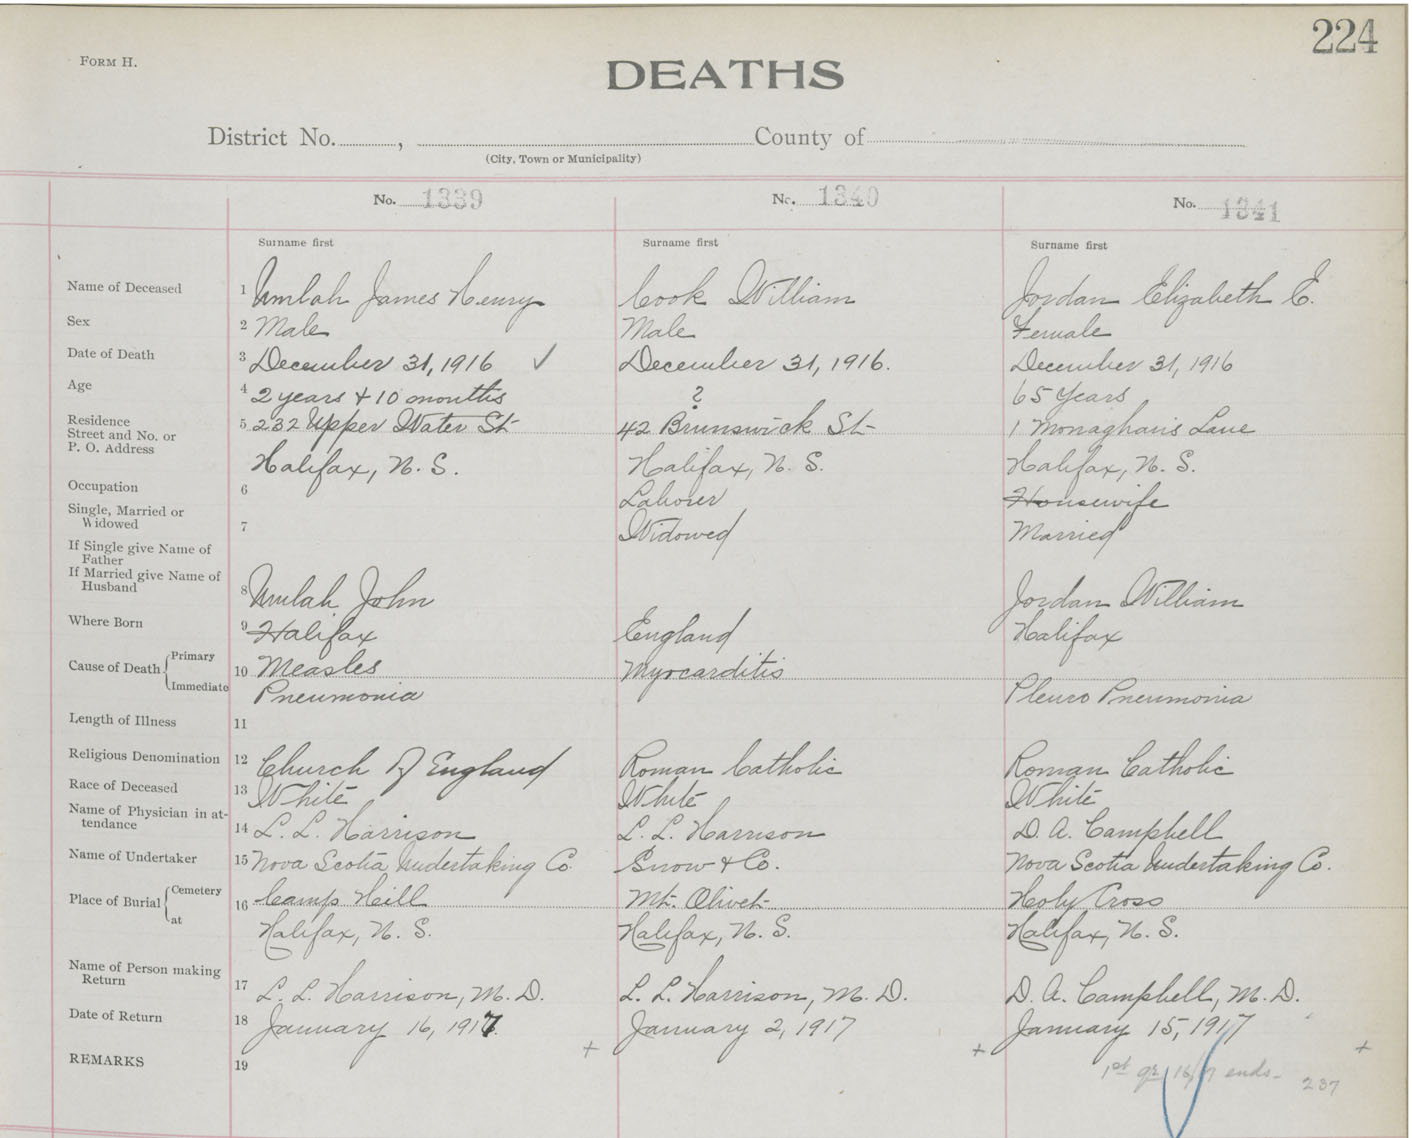 224
FORM H.
DEATHS
District No. , County of
(City, Town or Municipality)
No. 1339 No. 1340 No. 1341
Surname first Surname first Surname first
Name of Deceased 1 Umlah James Henry Cook William Jordan Elizabeth E.
Sex 2 Male Male Female
Date of Death 3 December 31, 1916 ✓ December 31, 1916. December 31, 1916
Age 4 2 years + 10 months ? 65 Years
Residence
Street and No. or 5 232 Upper Water St 42 Brunswick St 1 Monaghan's Lane
P. O. Address
Halifax, N. S. Halifax, N. S. Halifax, N. S.
Occupation 6 Laborer Housewife
Single, Married or
Widowed 7 Widowed Married
If Single give Name of
Father
If Married give Name of
Husband 8 Umlah John Jordan William
Where Born 9 Halifax England Halifax
Cause of Death Primary 10 Measles Myocarditis
Immediate Pneumonia Pleuro Pneumonia
Length of Illness 11
Religious Denomination 12 Church of England Roman Catholic Roman Catholic
Race of Deceased 13 White White White
Name of Physician in at-
tendance 14 L. L. Harrison L. L. Harrison D. A. Campbell
Name of Undertaker 15 Nova Scotia Undertaking Co. Snow & Co. Nova Scotia Undertaking Co.
Place of Burial Cemetery 16 Camp Hill Mt. Olivet Holy Cross
at Halifax, N. S. Halifax, N. S. Halifax, N. S.
Name of Person making
Return 17 L. L. Harrison, M. D. L. L. Harrison, M. D. D. A. Campbell, M. D.
Date of Return 18 January 16, 1917. January 2, 1917 January 15, 1917
+ + +
REMARKS 19 1st qr 16/17 ends- 237